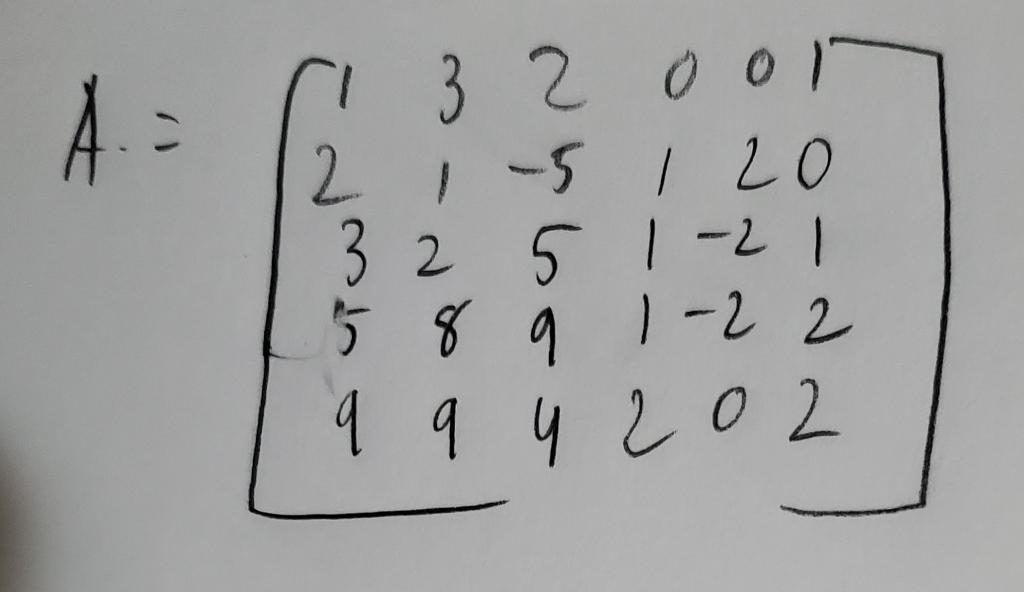 A. = 1 3 2 0 0 1
2 1 -5 1 2 0
3 2 5 1 -2 1
5 8 9 1 -2 2
9 9 4 2 0 2